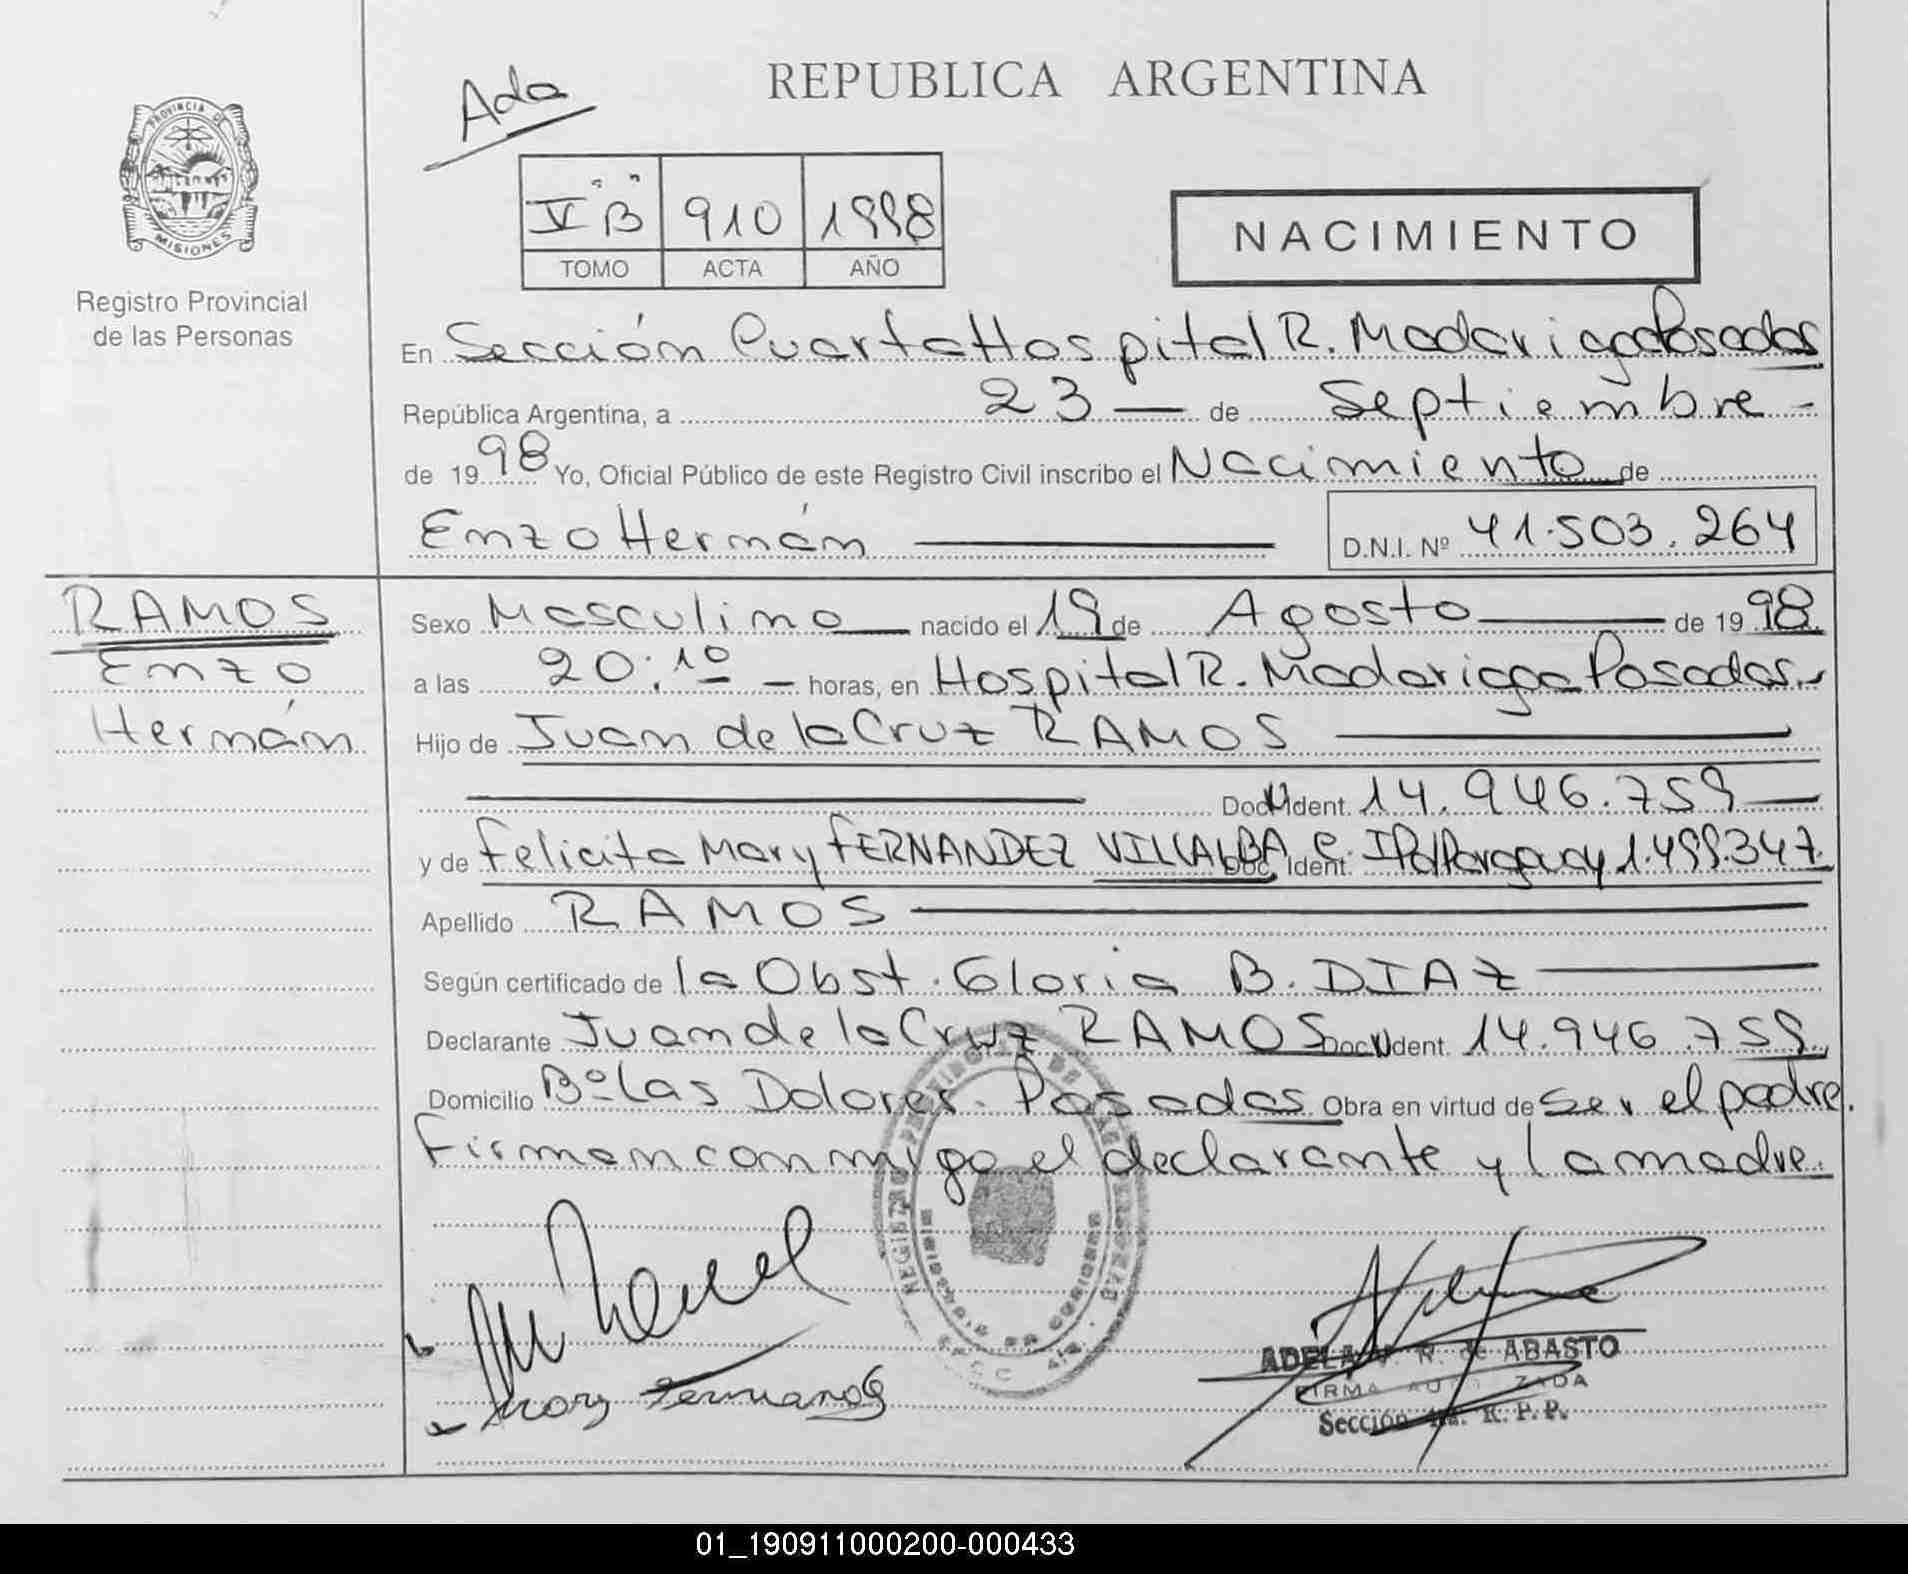 Ada
REPUBLICA ARGENTINA
PROVINCIA DE
MISIONES
Registro Provincial
de las Personas
V "B" 910 1998
TOMO ACTA AÑO
NACIMIENTO
En Sección Cuarta Hospital R. Madariaga Posadas
República Argentina, a 23 — de Septiembre -
de 1998 Yo, Oficial Público de este Registro Civil inscribo el Nacimiento de
Enzo Hernán
D.N.I. Nº 41.503.264
RAMOS
Enzo
Hernán
Sexo Masculino nacido el 19 de Agosto de 1998
a las 20:10 — horas, en Hospital R. Madariaga Posadas.
Hijo de Juan de la Cruz RAMOS
Doc. Ident. 14.946.759
y de Felicita Mary FERNANDEZ VILLALBA Doc. Ident. C. IPdlParaguay 1.499.347.
Apellido RAMOS
Según certificado de la Obst. Gloria B. DIAZ
Declarante Juan de la Cruz RAMOS Doc. Ident. 14.946.759
Domicilio Bº Las Dolores. Posadas Obra en virtud de ser el padre.
Firman conmigo el declarante y la madre.
REGISTRO PROVINCIAL DE LAS PERSONAS
Mary Fernandez
ADELA R. de ABASTO
FIRMA AUTORIZADA
Sección 4a. R. P. P.
01_190911000200-000433